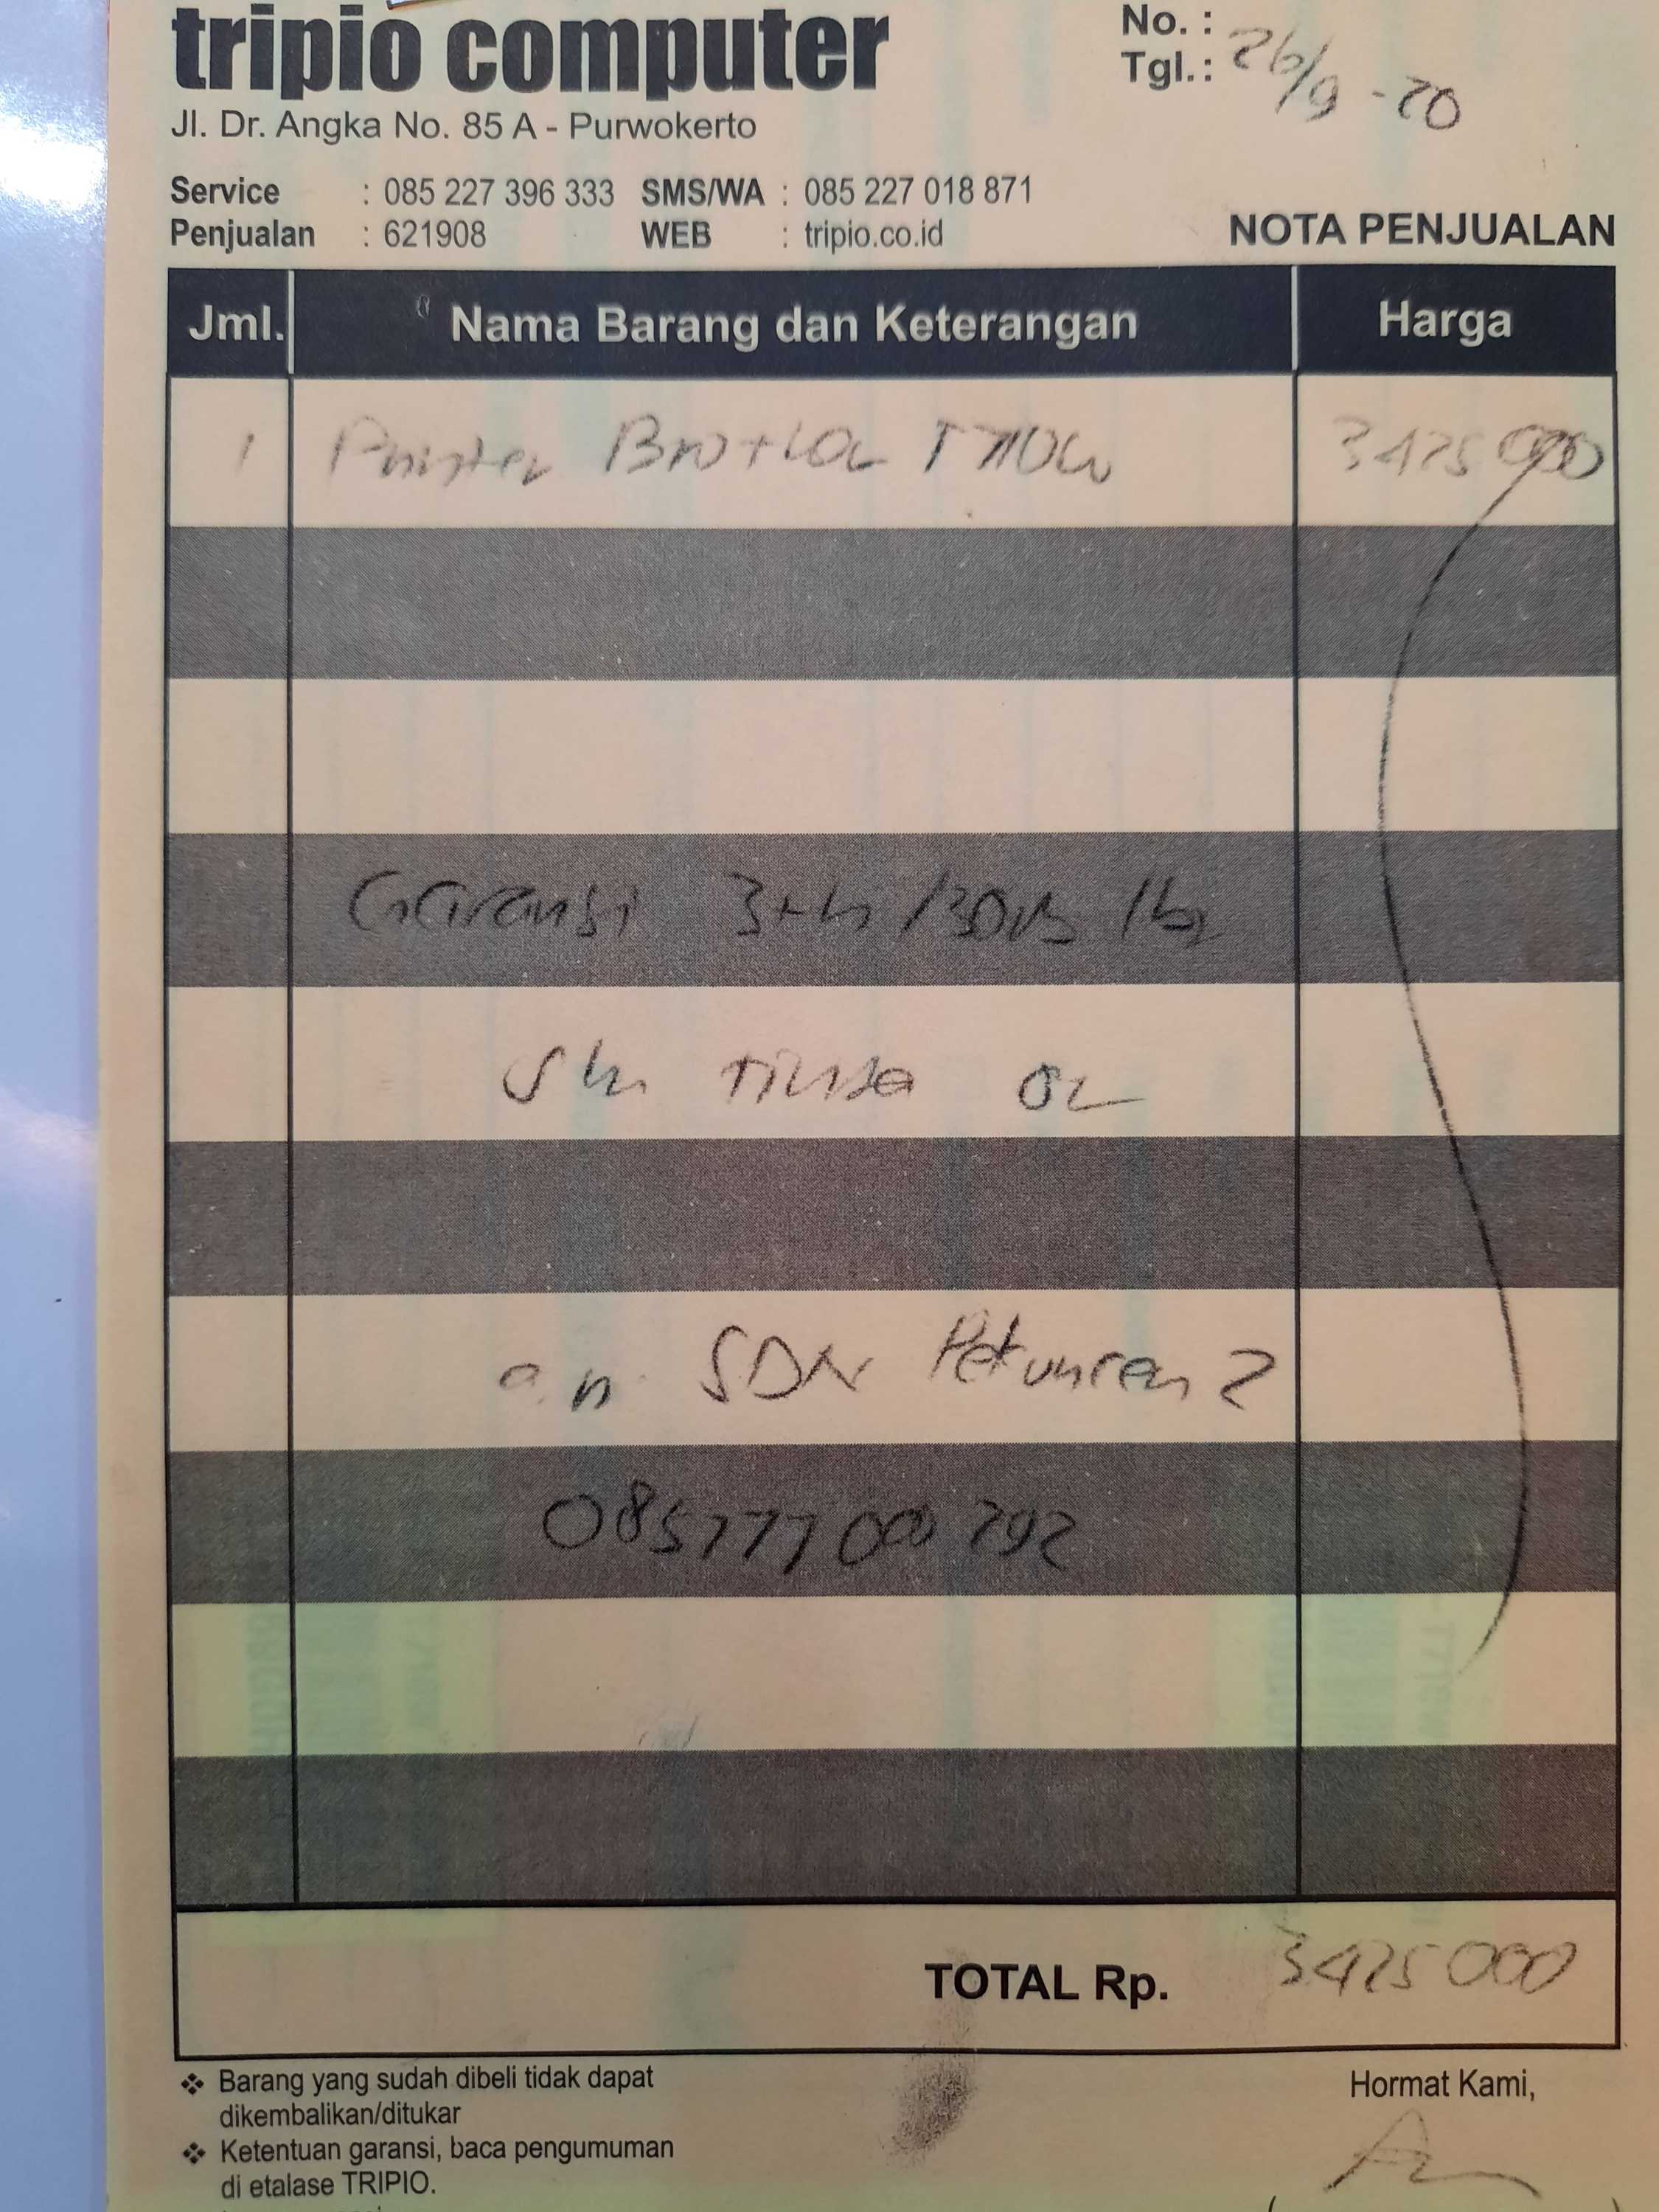 tripio computer
No. :
Tgl.: 26/9 -20
Jl. Dr. Angka No. 85 A - Purwokerto
Service : 085 227 396 333 SMS/WA : 085 227 018 871
Penjualan : 621908 WEB : tripio.co.id
NOTA PENJUALAN
Jml. Nama Barang dan Keterangan Harga
1 Printer Brother T710W 3425000
Garansi 3th/30rb lbr
tinta
a.n SDN Pekuncen 2
085777000792
TOTAL Rp. 3425000
❖ Barang yang sudah dibeli tidak dapat
dikembalikan/ditukar
❖ Ketentuan garansi, baca pengumuman
di etalase TRIPIO.
Hormat Kami,